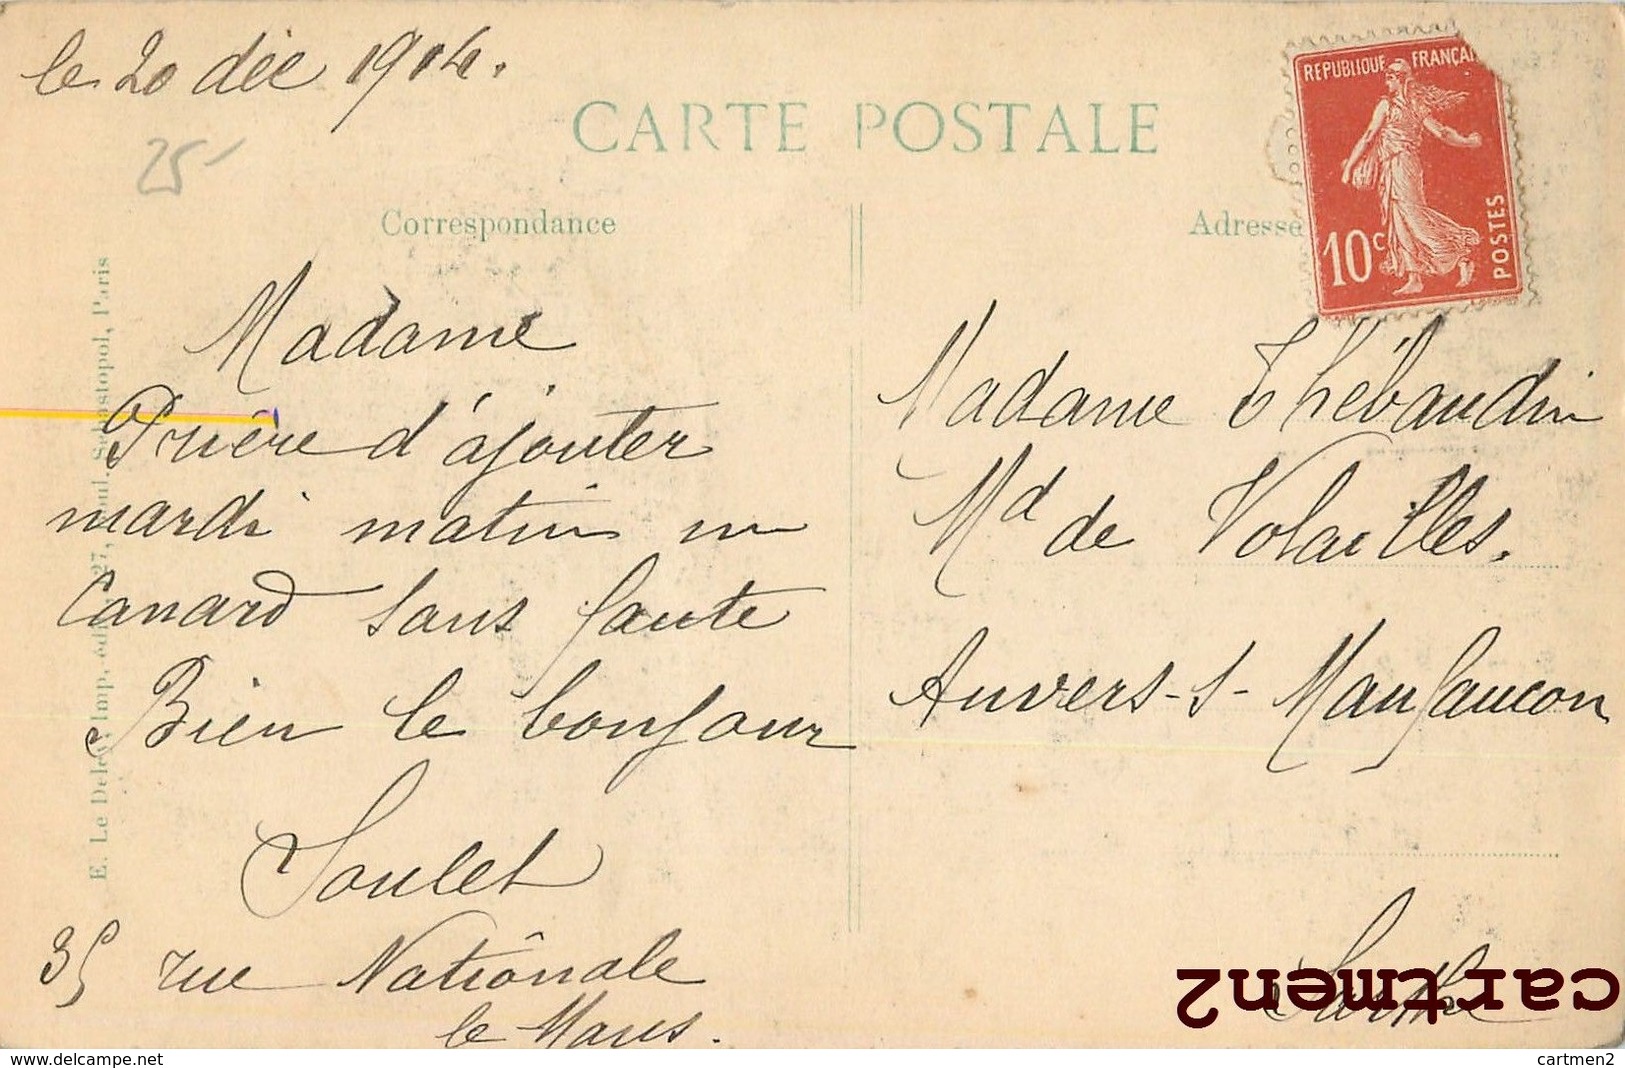 le 20 déc 1914.
25
CARTE POSTALE
REPUBLIQUE FRANÇAI
10c
POSTES
Correspondance
Adresse
E. Le Deley, imp., édit., 127, boul. Sébastopol, Paris
Madame
Prière d'ajouter
mardi matin un
Canard sans faute
Bien le bonjour
Soulet
35 rue Natiônale
le Mans.
Madame Thébaudin
Md de Volailles.
Auvers-s-Maufaucon
Sarthe
cartmen2
www.delcampe.net
cartmen2